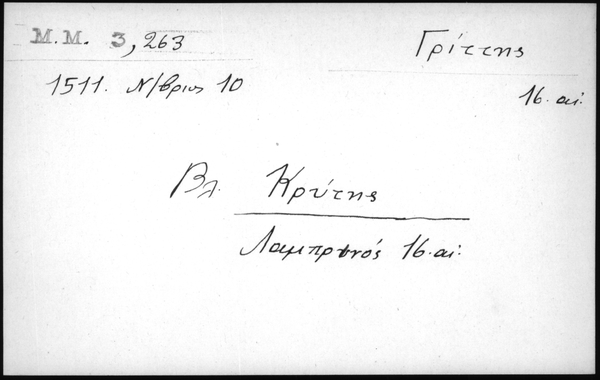 M.M. 3,263
Γρίττης
1511. Ν/βριος 10
16. αι.
Βλ. Κρύτης
Λαμπρινός 16. αι.